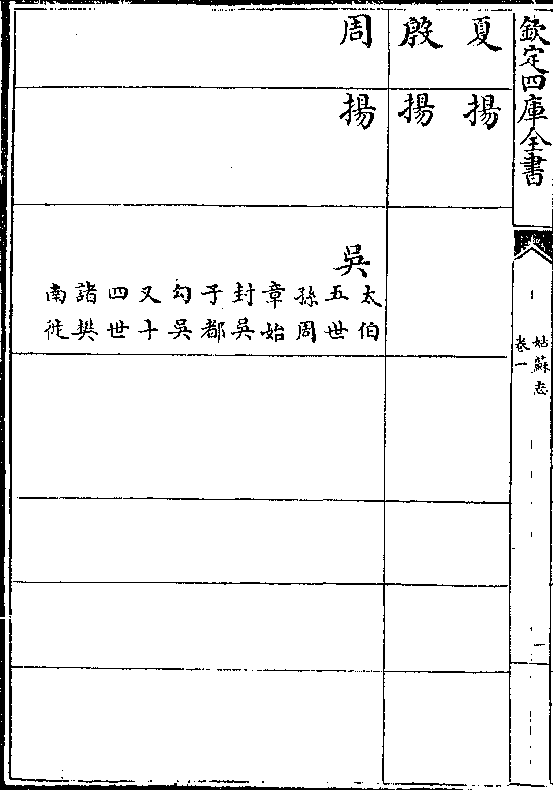 欽定四庫全書
姑蘇志
卷一
夏 揚
殷 揚
周 揚 吳
太伯
五世
孫周
章始
封吳
子都
勾吳
又十
四世
諸樊
南徙